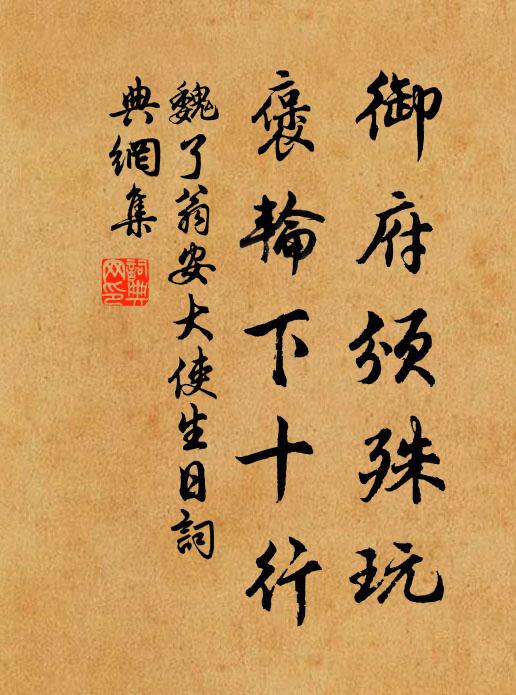 御府頒殊玩
褒輪下十行
魏了翁安大使生日詞
典網集
詞典
网印